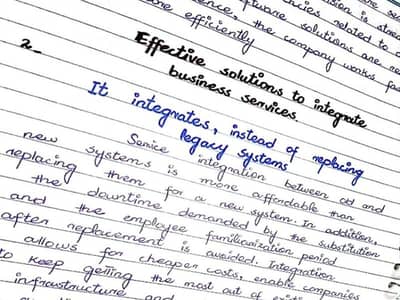 software solutions are
ence, the company works fas
re efficiently
2. Effective solutions to integrate
business services.
It integrates, instead of replacing
legacy systems
Service integration between old and
new systems is more affordable than
replacing them for a new system. In addition,
the downtime demanded by the substitution
and the employee familiarization period
after replacement is avoided. Integration
allows for cheaper costs, enable companies
to keep getting the most out of
infrastructure and